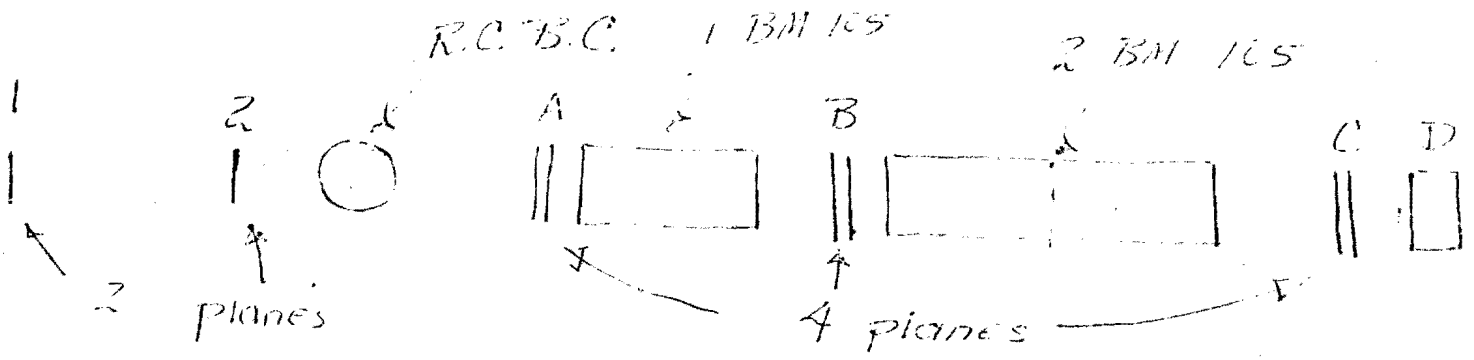 R.C. B.C. 1 BM 105 2 BM 105
1 2 A B C D
2 planes 4 planes